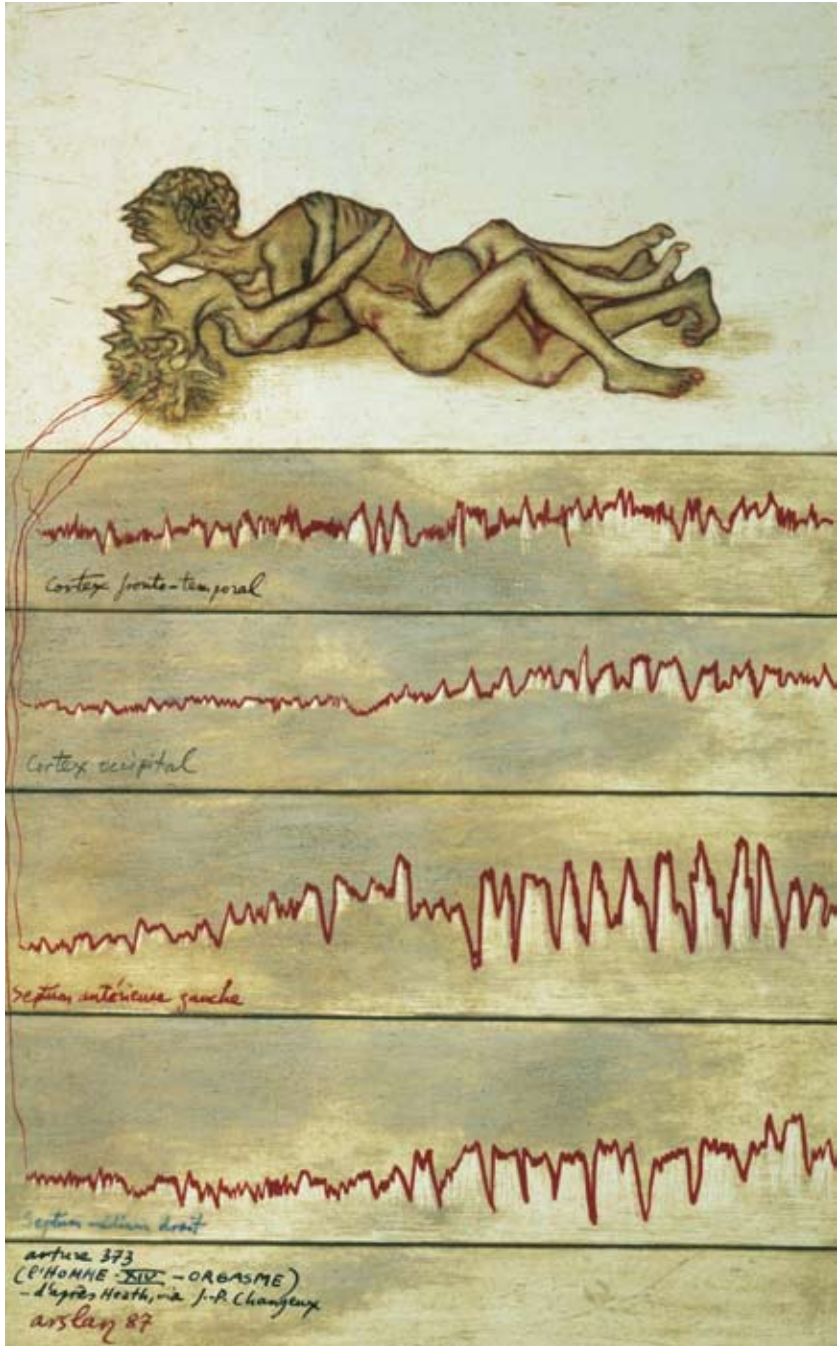 Cortex fronto-temporal
Cortex occipital
Septum antérieure gauche
Septum médian droit
arture 373
(l'HOMME-XIV-ORGASME)
-d'après Heath, via J.-P. Changeux
arslan 87